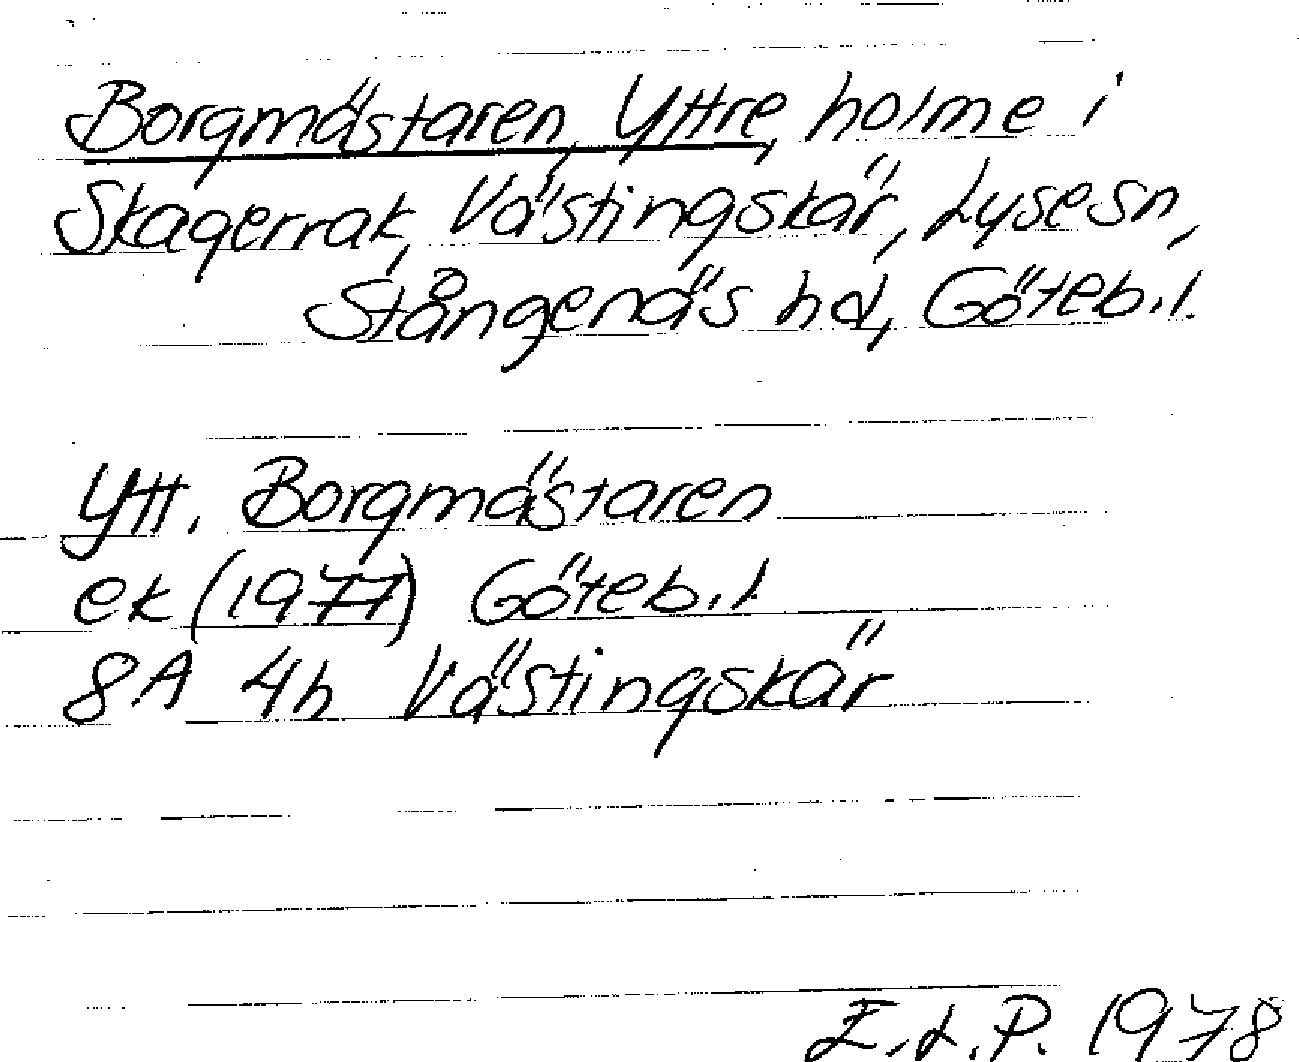 Borgmästaren, Yttre, holme i
Skagerrak, Västingskär, Lyse sn,
Stångenäs hd, Göteb.l.
Ytt. Borgmästaren
ek (1977) Göteb.l
8A 4h Västingskär
E.L.P. 1978